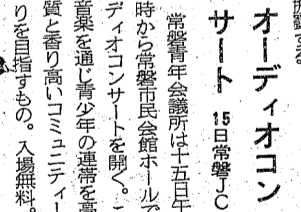 披露する
オーディオコン
サート 15日常磐JC
常磐青年会議所は十五日午
時から常磐市民会館ホールで
ディオコンサートを開く。
音楽を通じ青少年の連帯を
質と香り高いコミュニティー
りを目指すもの。入場無料。